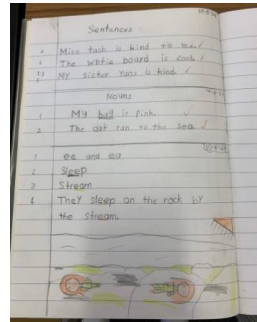 Sentences
1 Miss tash is kind to me.
2 The whtie board is cool.
3 My sister Yuos is kind.
Nouns
1 My ball is Pink.
2 The dot ran to the sea
1 ee and ea
2 Sleep
3 Stream
4 They sleep on the rock by
the stream.